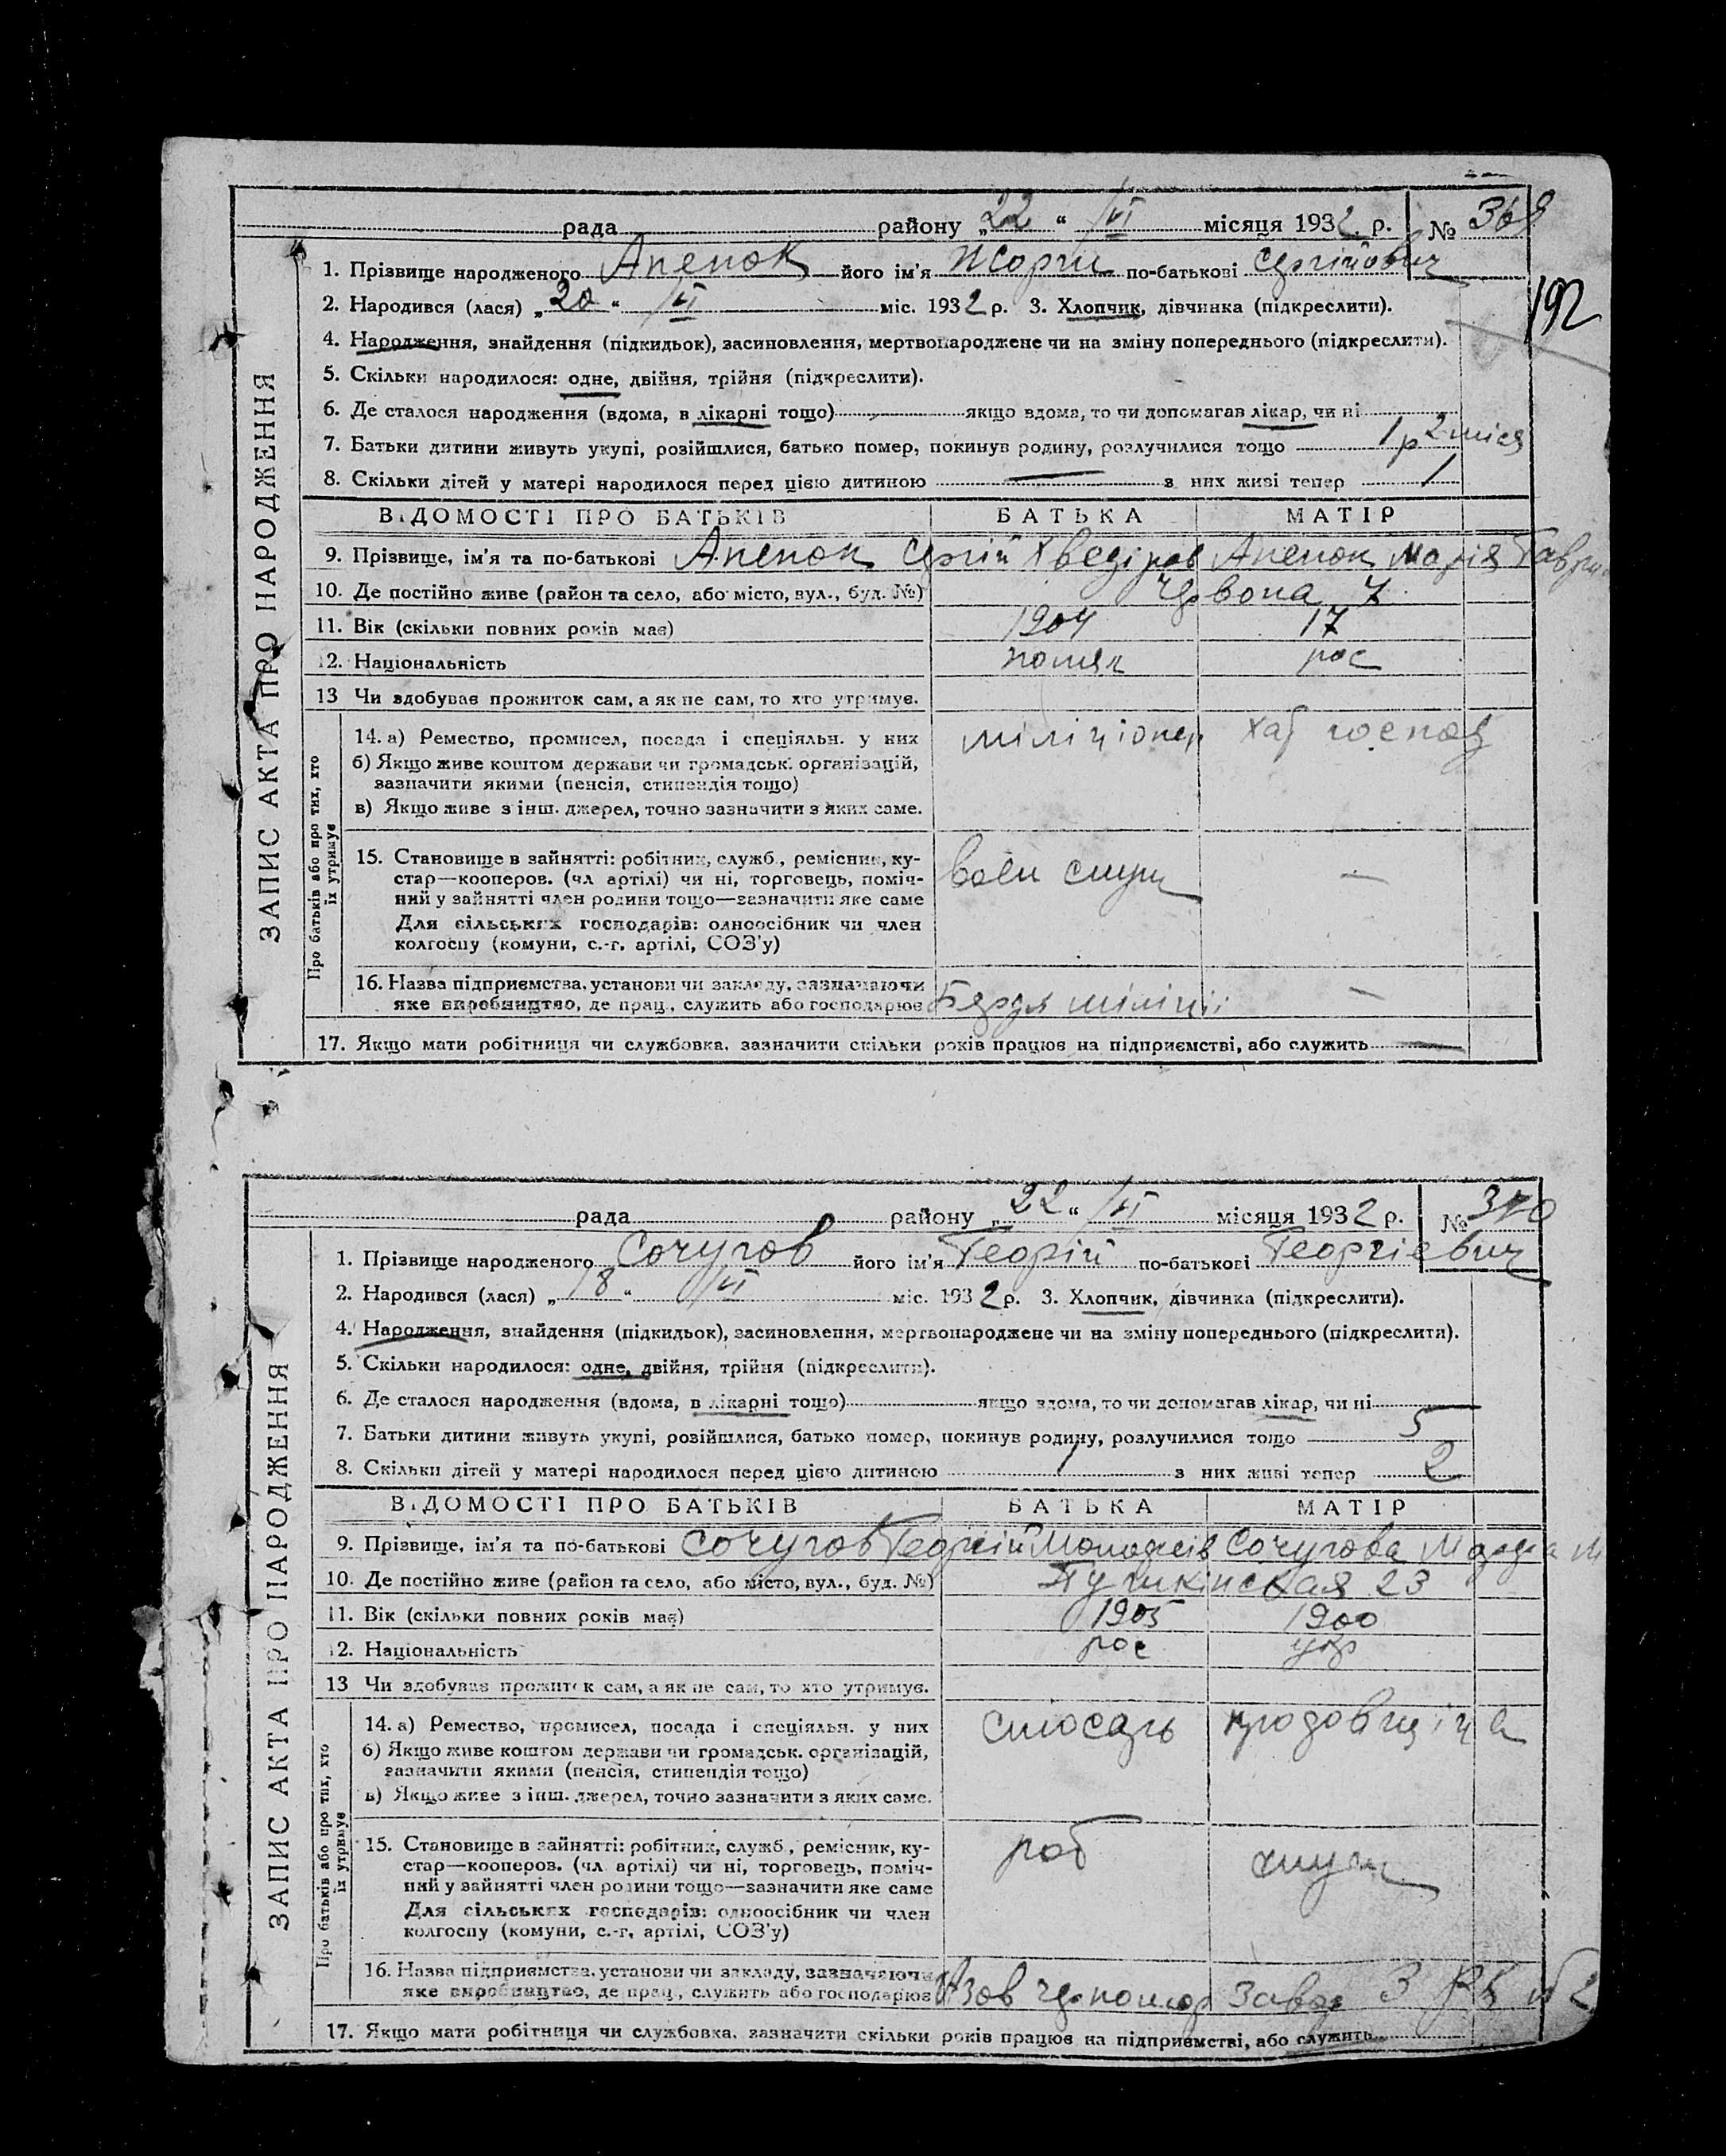 рада району „22“ VI місяця 1932 р. № 369
1. Прізвище народженого Апенок його ім'я Жорги по-батькові Сергійович
192
2. Народився (лася) „20“ VI міс. 1932 р. 3. Хлопчик, дівчинка (підкреслити).
4. Народження, знайдення (підкидьок), засиновлення, мертвонароджене чи на зміну попереднього (підкреслити).
5. Скільки народилося: одне, двійня, трійня (підкреслити).
6. Де сталося народження (вдома, в лікарні тощо) якщо вдома, то чи допомагав лікар, чи ні
7. Батьки дитини живуть укупі, розійшлися, батько помер, покинув родину, розлучилися тощо 1 р 2 міся
8. Скільки дітей у матері народилося перед цією дитиною — з них живі тепер 1
ВІДОМОСТІ ПРО БАТЬКІВ БАТЬКА МАТІР
9. Прізвище, ім'я та по-батькові Апенок Сергій Хведіров Апенок Марія Гаврил
10. Де постійно живе (район та село, або місто, вул., буд. №) Червона 7
11. Вік (скільки повних років має) 1904 17
12. Національність поляк рос
13 Чи здобуває прожиток сам, а як не сам, то хто утримує.
14. а) Ремество, промисел, посада і спеціяльн. у них міліціонер хат господ
б) Якщо живе коштом держави чи громадськ. організацій,
зазначити якими (пенсія, стипендія тощо)
в) Якщо живе з інш. джерел, точно зазначити з яких саме.
15. Становище в зайнятті: робітник, служб., ремісник, ку-
стар—кооперов. (чл артілі) чи ні, торговець, поміч-
ний у зайнятті член родини тощо—зазначити яке саме
воен служ —
Для сільських господарів: одноосібник чи член
колгоспу (комуни, с.-г. артілі, СОЗ'у)
16. Назва підприємства, установи чи закладу, зазначаючи
яке виробництво, де прац., служить або господарює міліції —
17. Якщо мати робітниця чи службовка, зазначити скільки років працює на підприємстві, або служить —
ЗАПИС АКТА ПРО НАРОДЖЕННЯ
Про батьків або про тих, хто
їх утримує
рада району „22“ VI місяця 1932 р. № 370
1. Прізвище народженого Сочугов його ім'я Георгій по-батькові Георгієвич
2. Народився (лася) „18“ VI міс. 1932 р. 3. Хлопчик, дівчинка (підкреслити).
4. Народження, знайдення (підкидьок), засиновлення, мертвонароджене чи на зміну попереднього (підкреслити).
5. Скільки народилося: одне, двійня, трійня (підкреслити).
6. Де сталося народження (вдома, в лікарні тощо) якщо вдома, то чи допомагав лікар, чи ні
7. Батьки дитини живуть укупі, розійшлися, батько помер, покинув родину, розлучилися тощо 5
8. Скільки дітей у матері народилося перед цією дитиною 1 з них живі тепер 2
ВІДОМОСТІ ПРО БАТЬКІВ БАТЬКА МАТІР
9. Прізвище, ім'я та по-батькові Сочугов Георгій Сочугова М
10. Де постійно живе (район та село, або місто, вул., буд. №) Пушкінская 23
11. Вік (скільки повних років має) 1905 1900
12. Національність рос укр
13 Чи здобуває прожиток сам, а як не сам, то хто утримує.
14. а) Ремество, промисел, посада і спеціяльн. у них слюсарь продавщіца
б) Якщо живе коштом держави чи громадськ. організацій,
зазначити якими (пенсія, стипендія тощо)
в) Якщо живе з інш. джерел, точно зазначити з яких саме.
15. Становище в зайнятті: робітник, служб., ремісник, ку-
стар—кооперов. (чл артілі) чи ні, торговець, поміч-
ний у зайнятті член родини тощо—зазначити яке саме
роб служ
Для сільських господарів: одноосібник чи член
колгоспу (комуни, с.-г. артілі, СОЗ'у)
16. Назва підприємства, установи чи закладу, зазначаючи
яке виробництво, де прац., служить або господарює Азов Чорномор Завод 3
17. Якщо мати робітниця чи службовка, зазначити скільки років працює на підприємстві, або служить
ЗАПИС АКТА ПРО НАРОДЖЕННЯ
Про батьків або про тих, хто
їх утримує